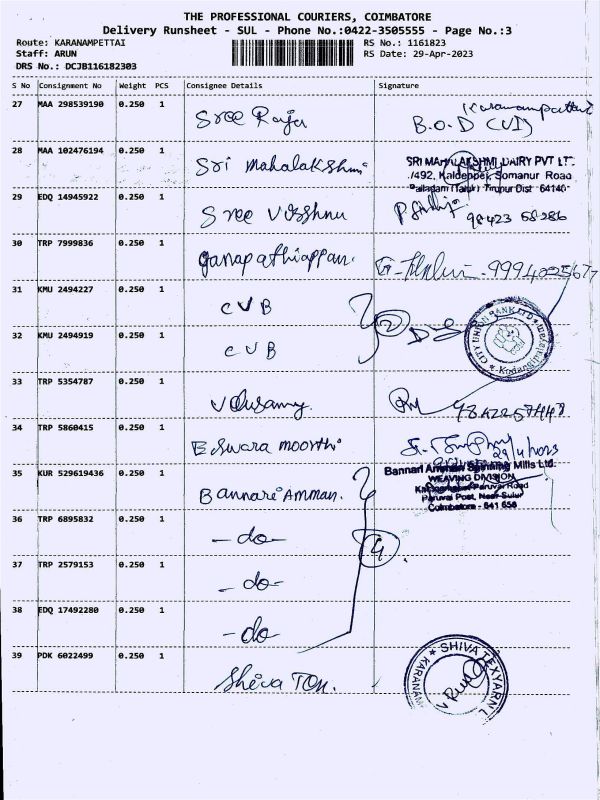 THE PROFESSIONAL COURIERS, COIMBATORE
Delivery Runsheet - SUL - Phone No.:0422-3505555 - Page No.:3
Route: KARANAMPETTAI
RS No.: 1161823
Staff: ARUN
RS Date: 29-Apr-2023
DRS No.: DCJB116182303
S No Consignment No Weight PCS Consignee Details Signature
27 MAA 298539190 0.250 1 Sree Raja Karanampettai
B.O.D (VI)
28 MAA 102476194 0.250 1 Sri Mahalakshmi SRI MAHALAKSHMI DAIRY PVT LTD.
/492, Somanur Road
Palladam (Taluk) Tirupur Dist 64140
29 EDQ 14945922 0.250 1 Sree Visshnu 98423 68286
30 TRP 7999836 0.250 1 Ganapathiappan. 9994025677
31 KMU 2494227 0.250 1 CVB
2
CITY UNION BANK LTD
32 KMU 2494919 0.250 1 CVB
33 TRP 5354787 0.250 1 Velusamy. 9842257448
34 TRP 5860415 0.250 1 Eswara moorthi 29/4/2023
35 KUR 529619436 0.250 1 Bannari Amman. Bannari Amman Spinning Mills Ltd.
WEAVING DIVISION
Paruvai Road
Paruvai Post, Near Sulur
Coimbatore - 641 658
36 TRP 6895832 0.250 1 -do-
4
37 TRP 2579153 0.250 1 -do-
38 EDQ 17492280 0.250 1 -do
39 PDK 6022499 0.250 1 Shiva Tex. SHIVA TEXYARN L
KARANAM